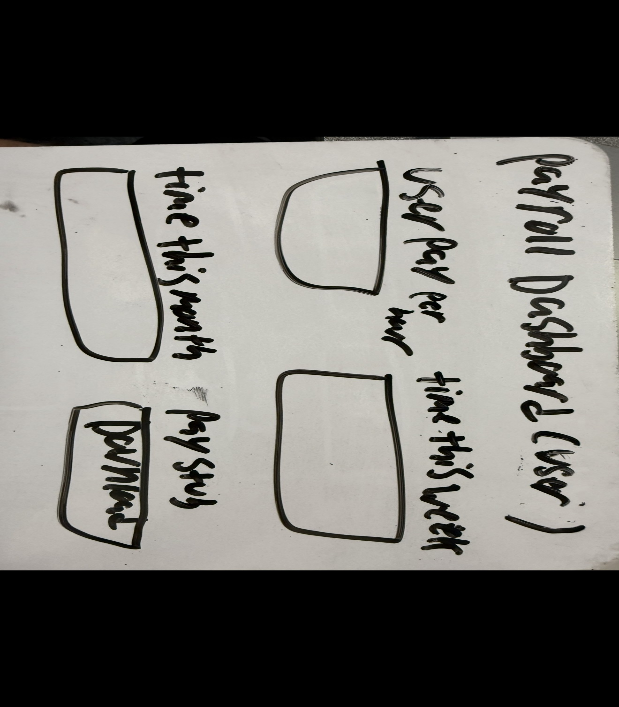 Payroll Dashboard (user)
user pay per hour
time this week
time this month
Pay Stub
Download